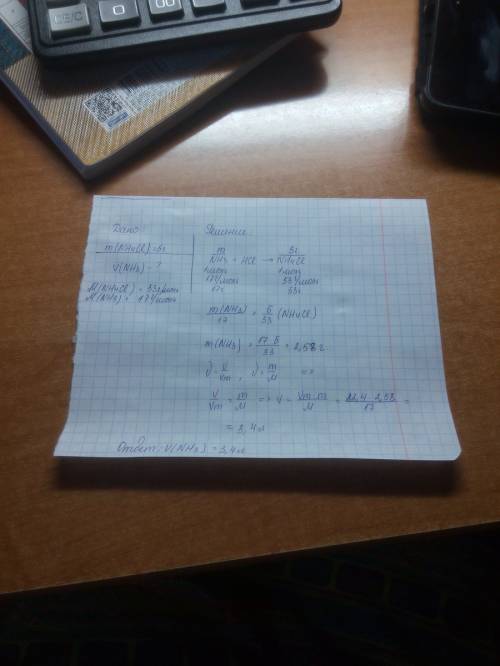 CE/C
0
00
Дано
m(NH4Cl) = 5г
V(NH3) - ?
M(NH4Cl) = 53г/моль
M(NH3) = 17г/моль
Решение
m 5г
NH3 + HCl → NH4Cl
1моль 1моль
17г/моль 53г/моль
17г 53г
m(NH3)/17 = 5/53 (NH4Cl)
m(NH3) = 17·5/33 = 2,58 г
ν = V/Vm , ν = m/M =>
V/Vm = m/M => V = Vm·m/M = 22,4·2,58/17 =
= 3,4 л
Ответ: V(NH3) = 3,4 л